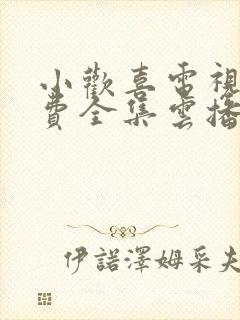 小歡喜電視
費全集雲播
伊諾澤姆采夫